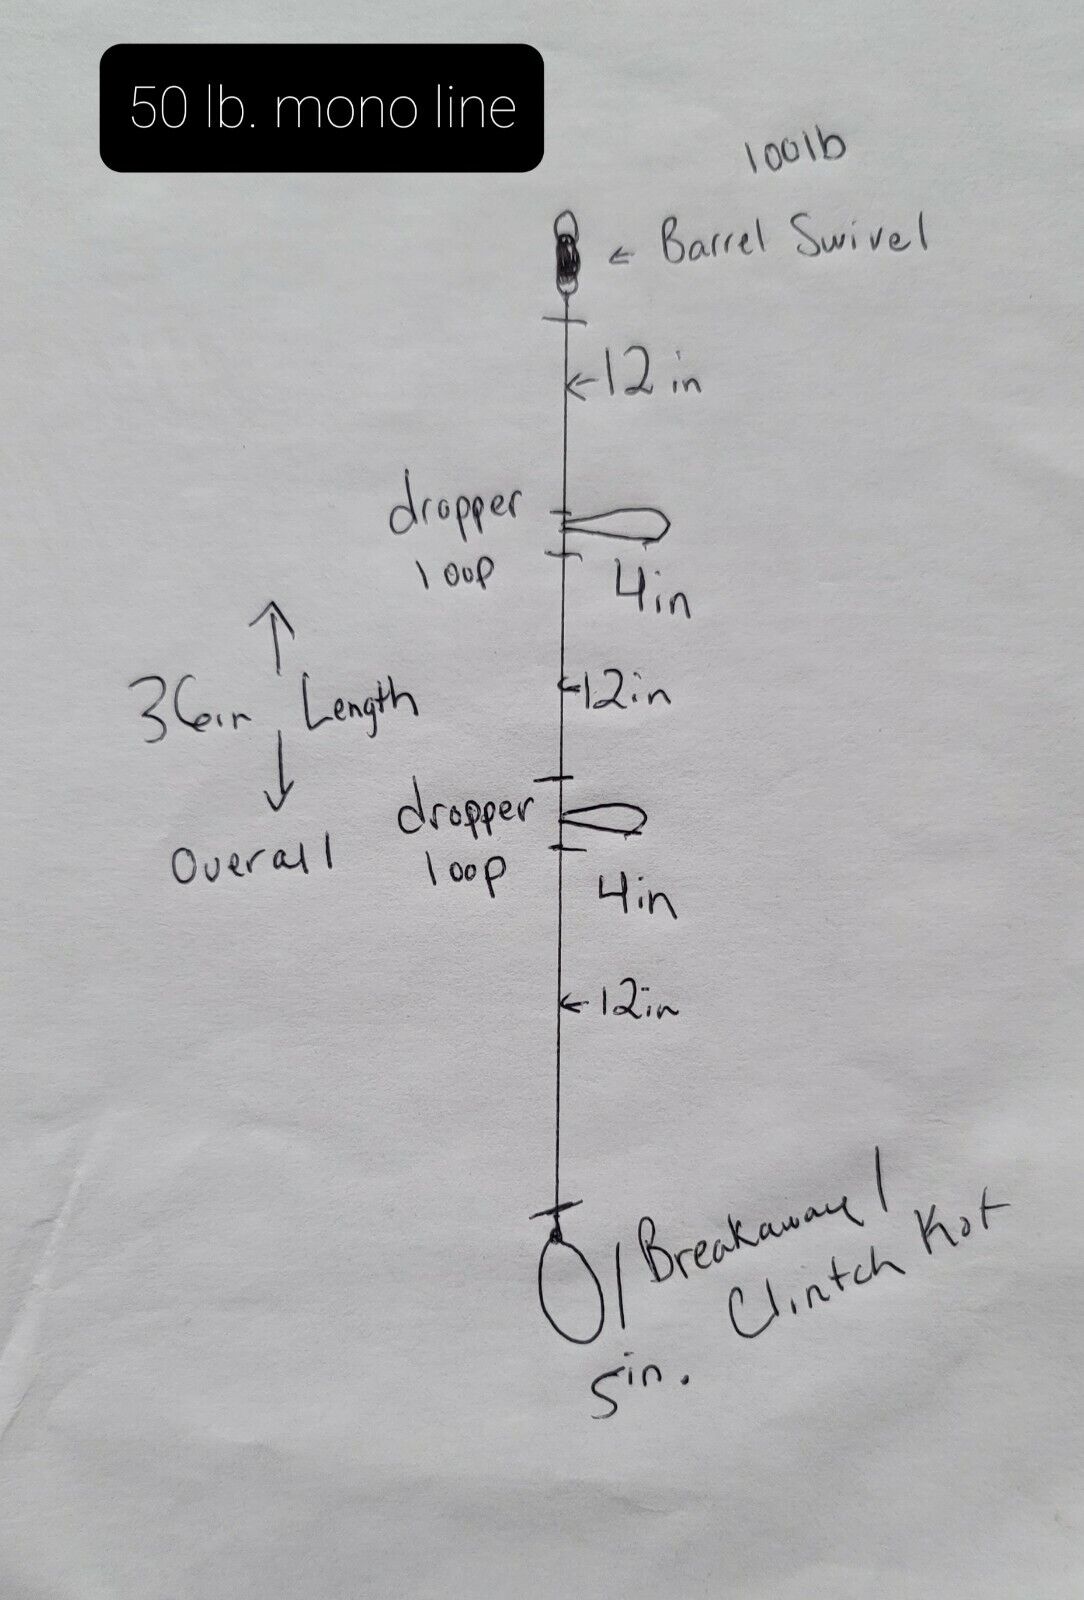 50 lb. mono line
100lb
← Barrel Swivel
←12 in
dropper
loop
4in
36in Length
←12in
dropper
Overall
loop
4in
←12in
Breakaway /
Clintch Kot
5in.